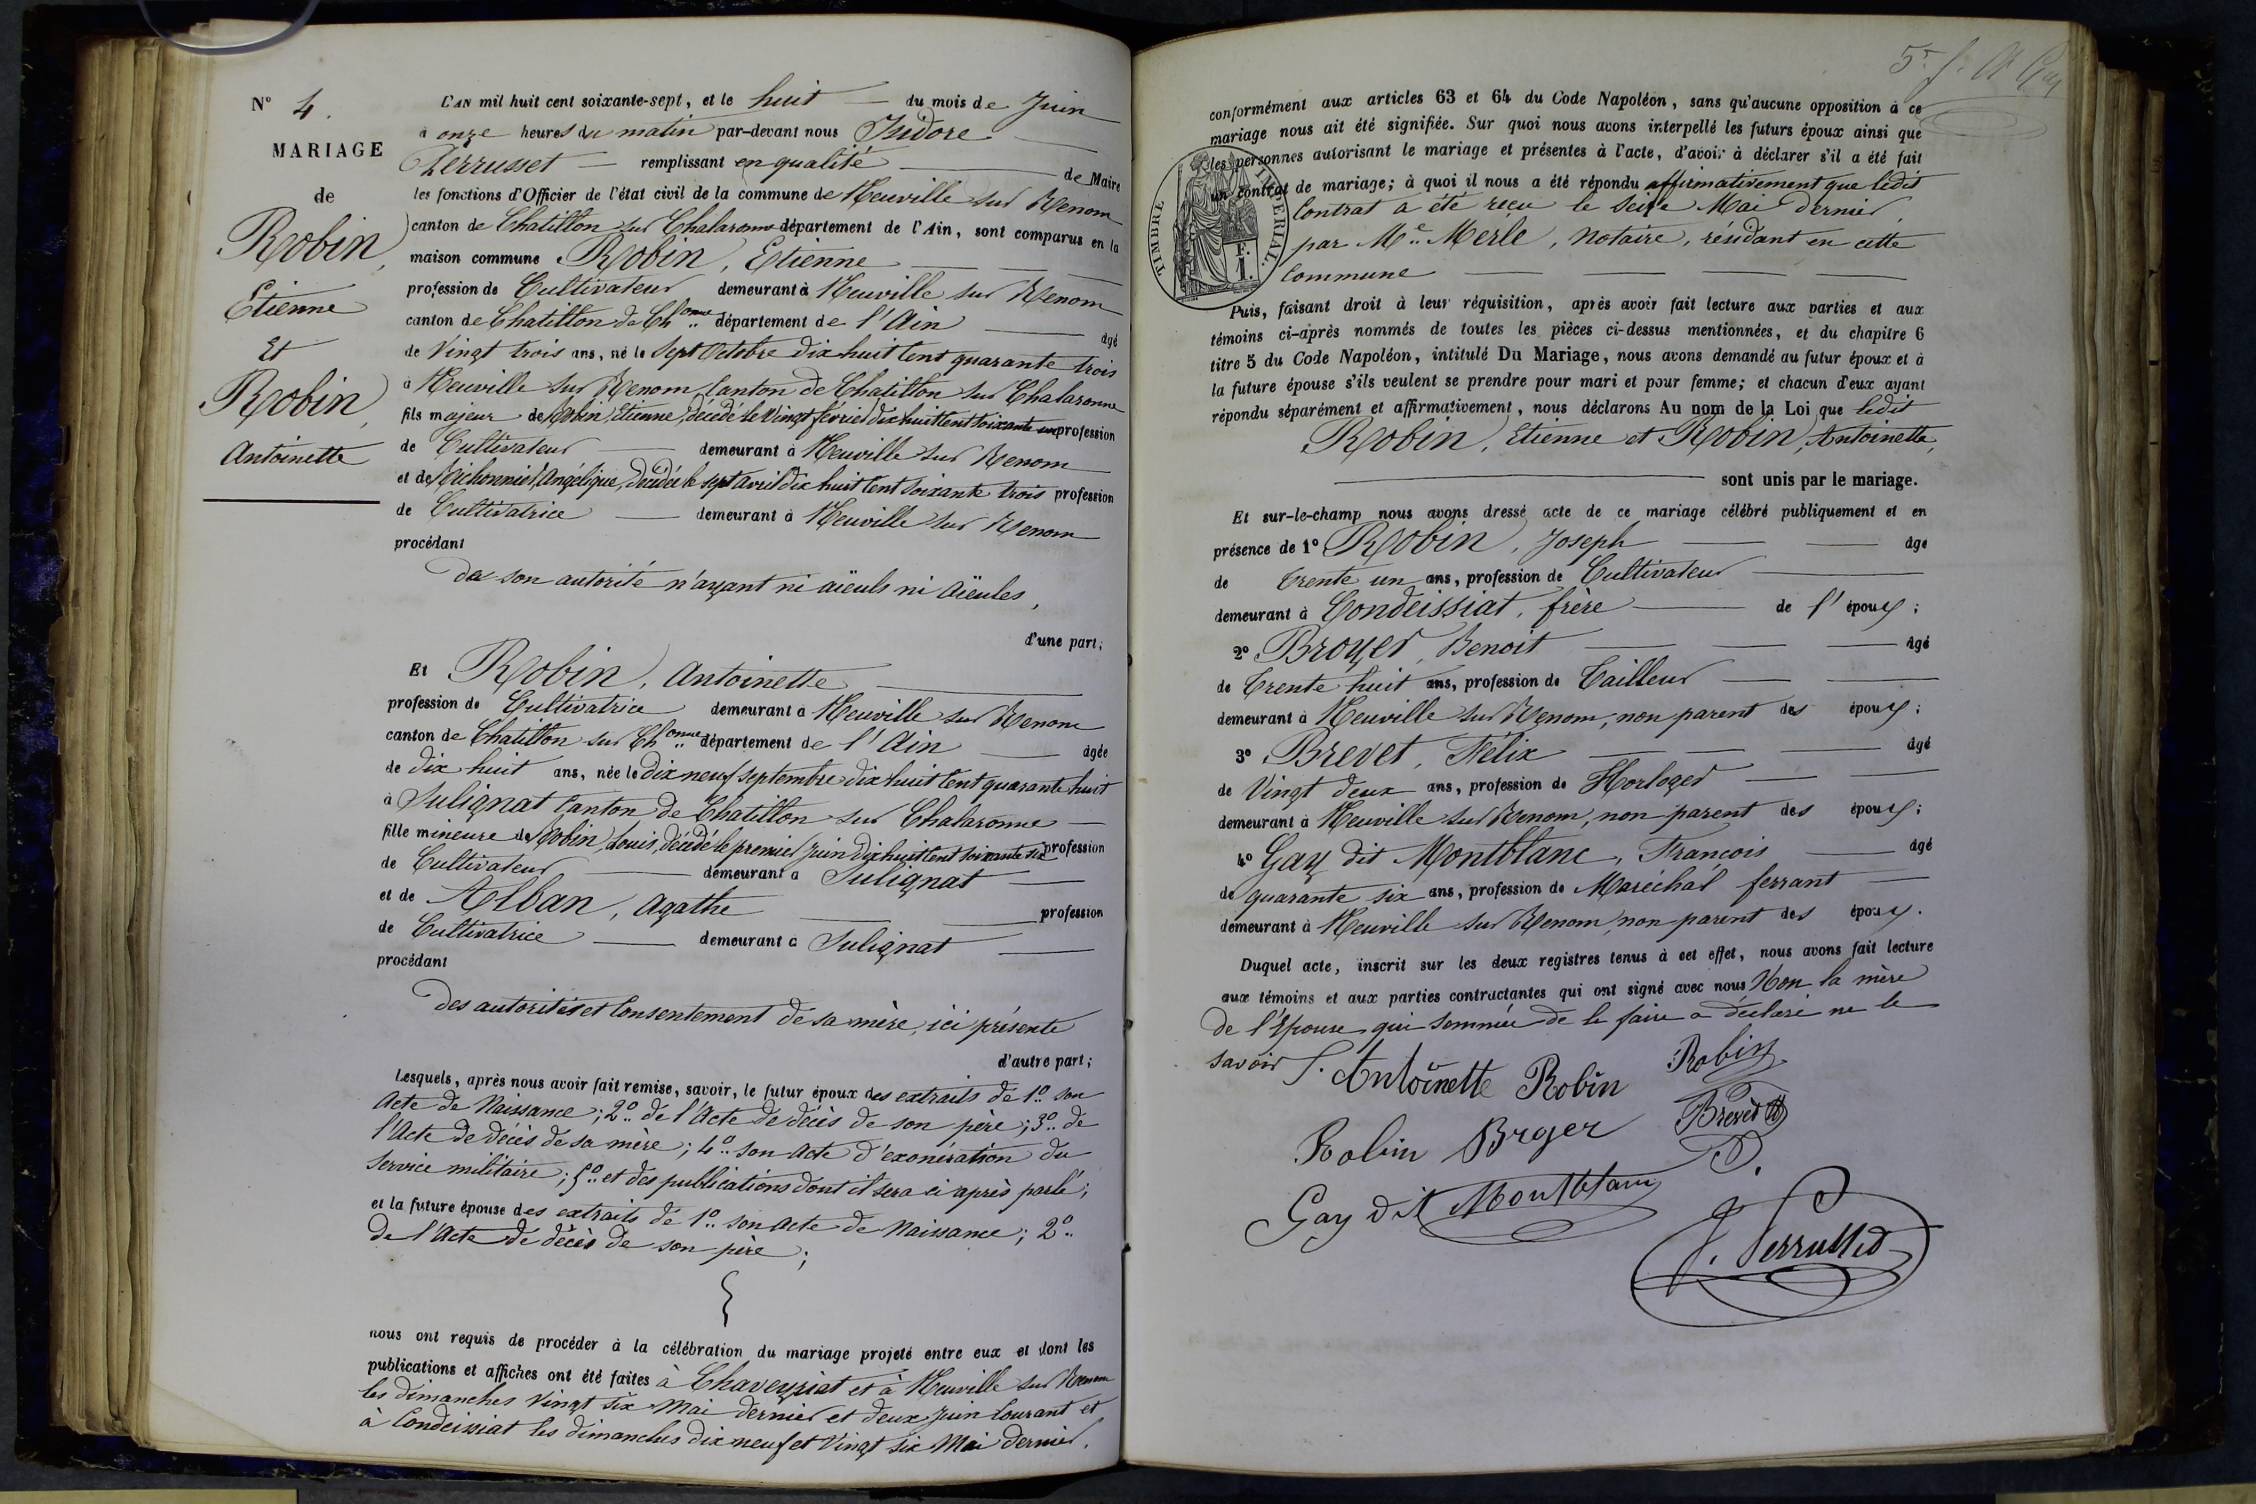 N° 4.
MARIAGE
de
Robin,
Etienne
Et
Robin,
Antoinette
L'AN mil huit cent soixante-sept, et le huit du mois de Juin
à onze heures du matin par-devant nous Isidore
Perrusset remplissant en qualité de Maire
les fonctions d'Officier de l'état civil de la commune de Neuville sur Renom
canton de Chatillon sur Chalaronne département de l'Ain, sont comparus en la
maison commune Robin, Etienne
profession de Cultivateur demeurant à Neuville sur Renom
canton de Chatillon s/ Chonne département de l'Ain âgé
de Vingt trois ans, né le Sept Octobre dix huit cent quarante trois
à Neuville sur Renom Canton de Chatillon sur Chalaronne
fils majeur de Robin, Etienne, décédé le Vingt février dix huit cent soixante un profession
de Cultivateur demeurant à Neuville sur Renom
et de Angélique, Décédée le sept avril dix huit cent soixante trois profession
de Cultivatrice demeurant à Neuville sur Renom
procédant
de son autorité n'ayant ni aïeuls ni aïeules,
d'une part;
Et Robin, Antoinette
profession de Cultivatrice demeurant à Neuville sur Renom
canton de Chatillon sur Chonne département de l'Ain âgée
de dix huit ans, née le dix neuf septembre dix huit cent quarante huit
à Sulignat Canton de Chatillon sur Chalaronne
fille mineure de Robin, Louis, décédé le premier Juin dix huit cent soixante six profession
de Cultivateur demeurant à Sulignat
et de Alban, Agathe profession
de Cultivatrice demeurant à Sulignat
procédant
des autorités et Consentement de sa mère, ici présente
d'autre part;
Lesquels, après nous avoir fait remise, savoir, le futur époux des extraits de 1° son
Acte de Naissance; 2° de l'Acte de décès de son père; 3° de
l'Acte de décès de sa mère; 4° son acte d'exonération du
Service militaire; 5° et des publications dont il sera ci après parlé;
et la future épouse des extraits de 1° son acte de Naissance; 2°
de l'Acte de décès de son père;
nous ont requis de procéder à la célébration du mariage projeté entre eux et dont les
publications et affiches ont été faites à Chaveyriat et à Neuville sur Renom
les dimanches Vingt six Mai dernier et deux Juin Courant et
à Condeissiat les dimanches dix neuf et Vingt six Mai dernier.
conformément aux articles 63 et 64 du Code Napoléon, sans qu'aucune opposition à ce
mariage nous ait été signifiée. Sur quoi nous avons interpellé les futurs époux ainsi que
les personnes autorisant le mariage et présentes à l'acte, d'avoir à déclarer s'il a été fait
un contrat de mariage; à quoi il nous a été répondu affirmativement que ledit
Contrat a été reçu le seize Mai dernier,
par Me Merle, Notaire, résidant en cette
Commune
TIMBRE IMPERIAL.
F.
1.
Puis, faisant droit à leur réquisition, après avoir fait lecture aux parties et aux
témoins ci-après nommés de toutes les pièces ci-dessus mentionnées, et du chapitre 6
titre 5 du Code Napoléon, intitulé Du Mariage, nous avons demandé au futur époux et à
la future épouse s'ils veulent se prendre pour mari et pour femme; et chacun d'eux ayant
répondu séparément et affirmativement, nous déclarons Au nom de la Loi que ledit
Robin, Etienne et Robin, Antoinette,
sont unis par le mariage.
Et sur-le-champ nous avons dressé acte de ce mariage célébré publiquement et en
présence de 1° Robin, Joseph âgé
de Trente un ans, profession de Cultivateur
demeurant à Condeissiat, frère de l'époux;
2° Broyer, Benoit âgé
de Trente huit ans, profession de Tailleur
demeurant à Neuville sur Renom, non parent des époux;
3° Brevet, Félix âgé
de Vingt deux ans, profession de Horloger
demeurant à Neuville sur Renom, non parent des époux;
4° Gay dit Montblanc, François âgé
de quarante six ans, profession de Maréchal ferrant
demeurant à Neuville sur Renom, non parent des époux.
Duquel acte, inscrit sur les deux registres tenus à cet effet, nous avons fait lecture
aux témoins et aux parties contractantes qui ont signé avec nous Non la mère
de l'Epouse qui sommée de le faire a déclaré ne le
savoir
Antoinette Robin Robin
Robin Broyer Brevet
Gay dit Montblanc
J. Perrusset